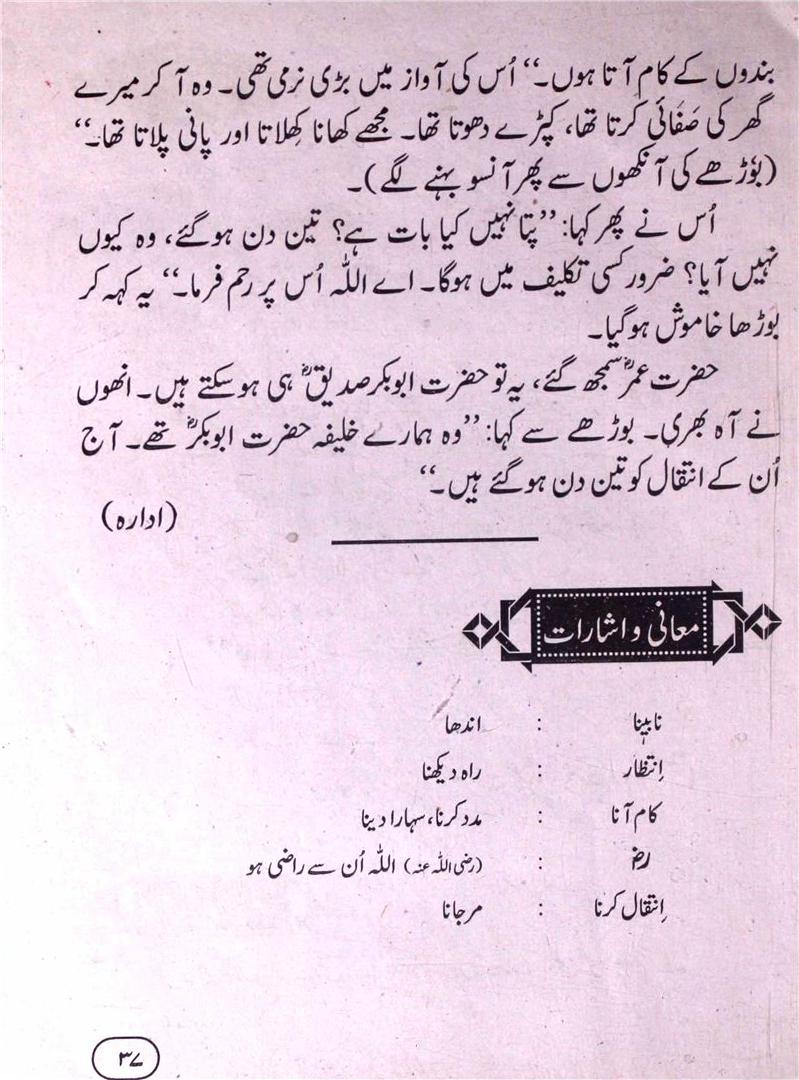 بندوں کے کام آتا ہوں۔‘‘ اُس کی آواز میں بڑی نرمی تھی۔ وہ آ کر میرے
گھر کی صَفَائی کرتا تھا، کپڑے دھوتا تھا۔ مجھے کھانا کِھلاتا اور پانی پِلاتا تھا۔‘‘
(بوٗڑھے کی آنکھوں سے پھر آنسو بہنے لگے)۔
اُس نے پھر کہا: ’’پتا نہیں کیا بات ہے؟ تین دن ہو گئے، وہ کیوں
نہیں آیا؟ ضرور کسی تکلیف میں ہوگا۔ اے اللہ اُس پر رحم فرما۔‘‘ یہ کہہ کر
بوڑھا خاموش ہو گیا۔
حضرت عمرؓ سمجھ گئے، یہ تو حضرت ابوبکر صدیقؓ ہی ہو سکتے ہیں۔ انھوں
نے آہ بھری۔ بوڑھے سے کہا: ’’وہ ہمارے خلیفہ حضرت ابوبکرؓ تھے۔ آج
اُن کے انتقال کو تین دن ہو گئے ہیں۔‘‘
(ادارہ)
معانی و اشارات
نابینا : اندھا
اِنتظار : راہ دیکھنا
کام آنا : مدد کرنا، سہارا دینا
رضؓ : (رضی اللہ عنہ) اللہ اُن سے راضی ہو
اِنتقال کرنا : مر جانا
۳۷